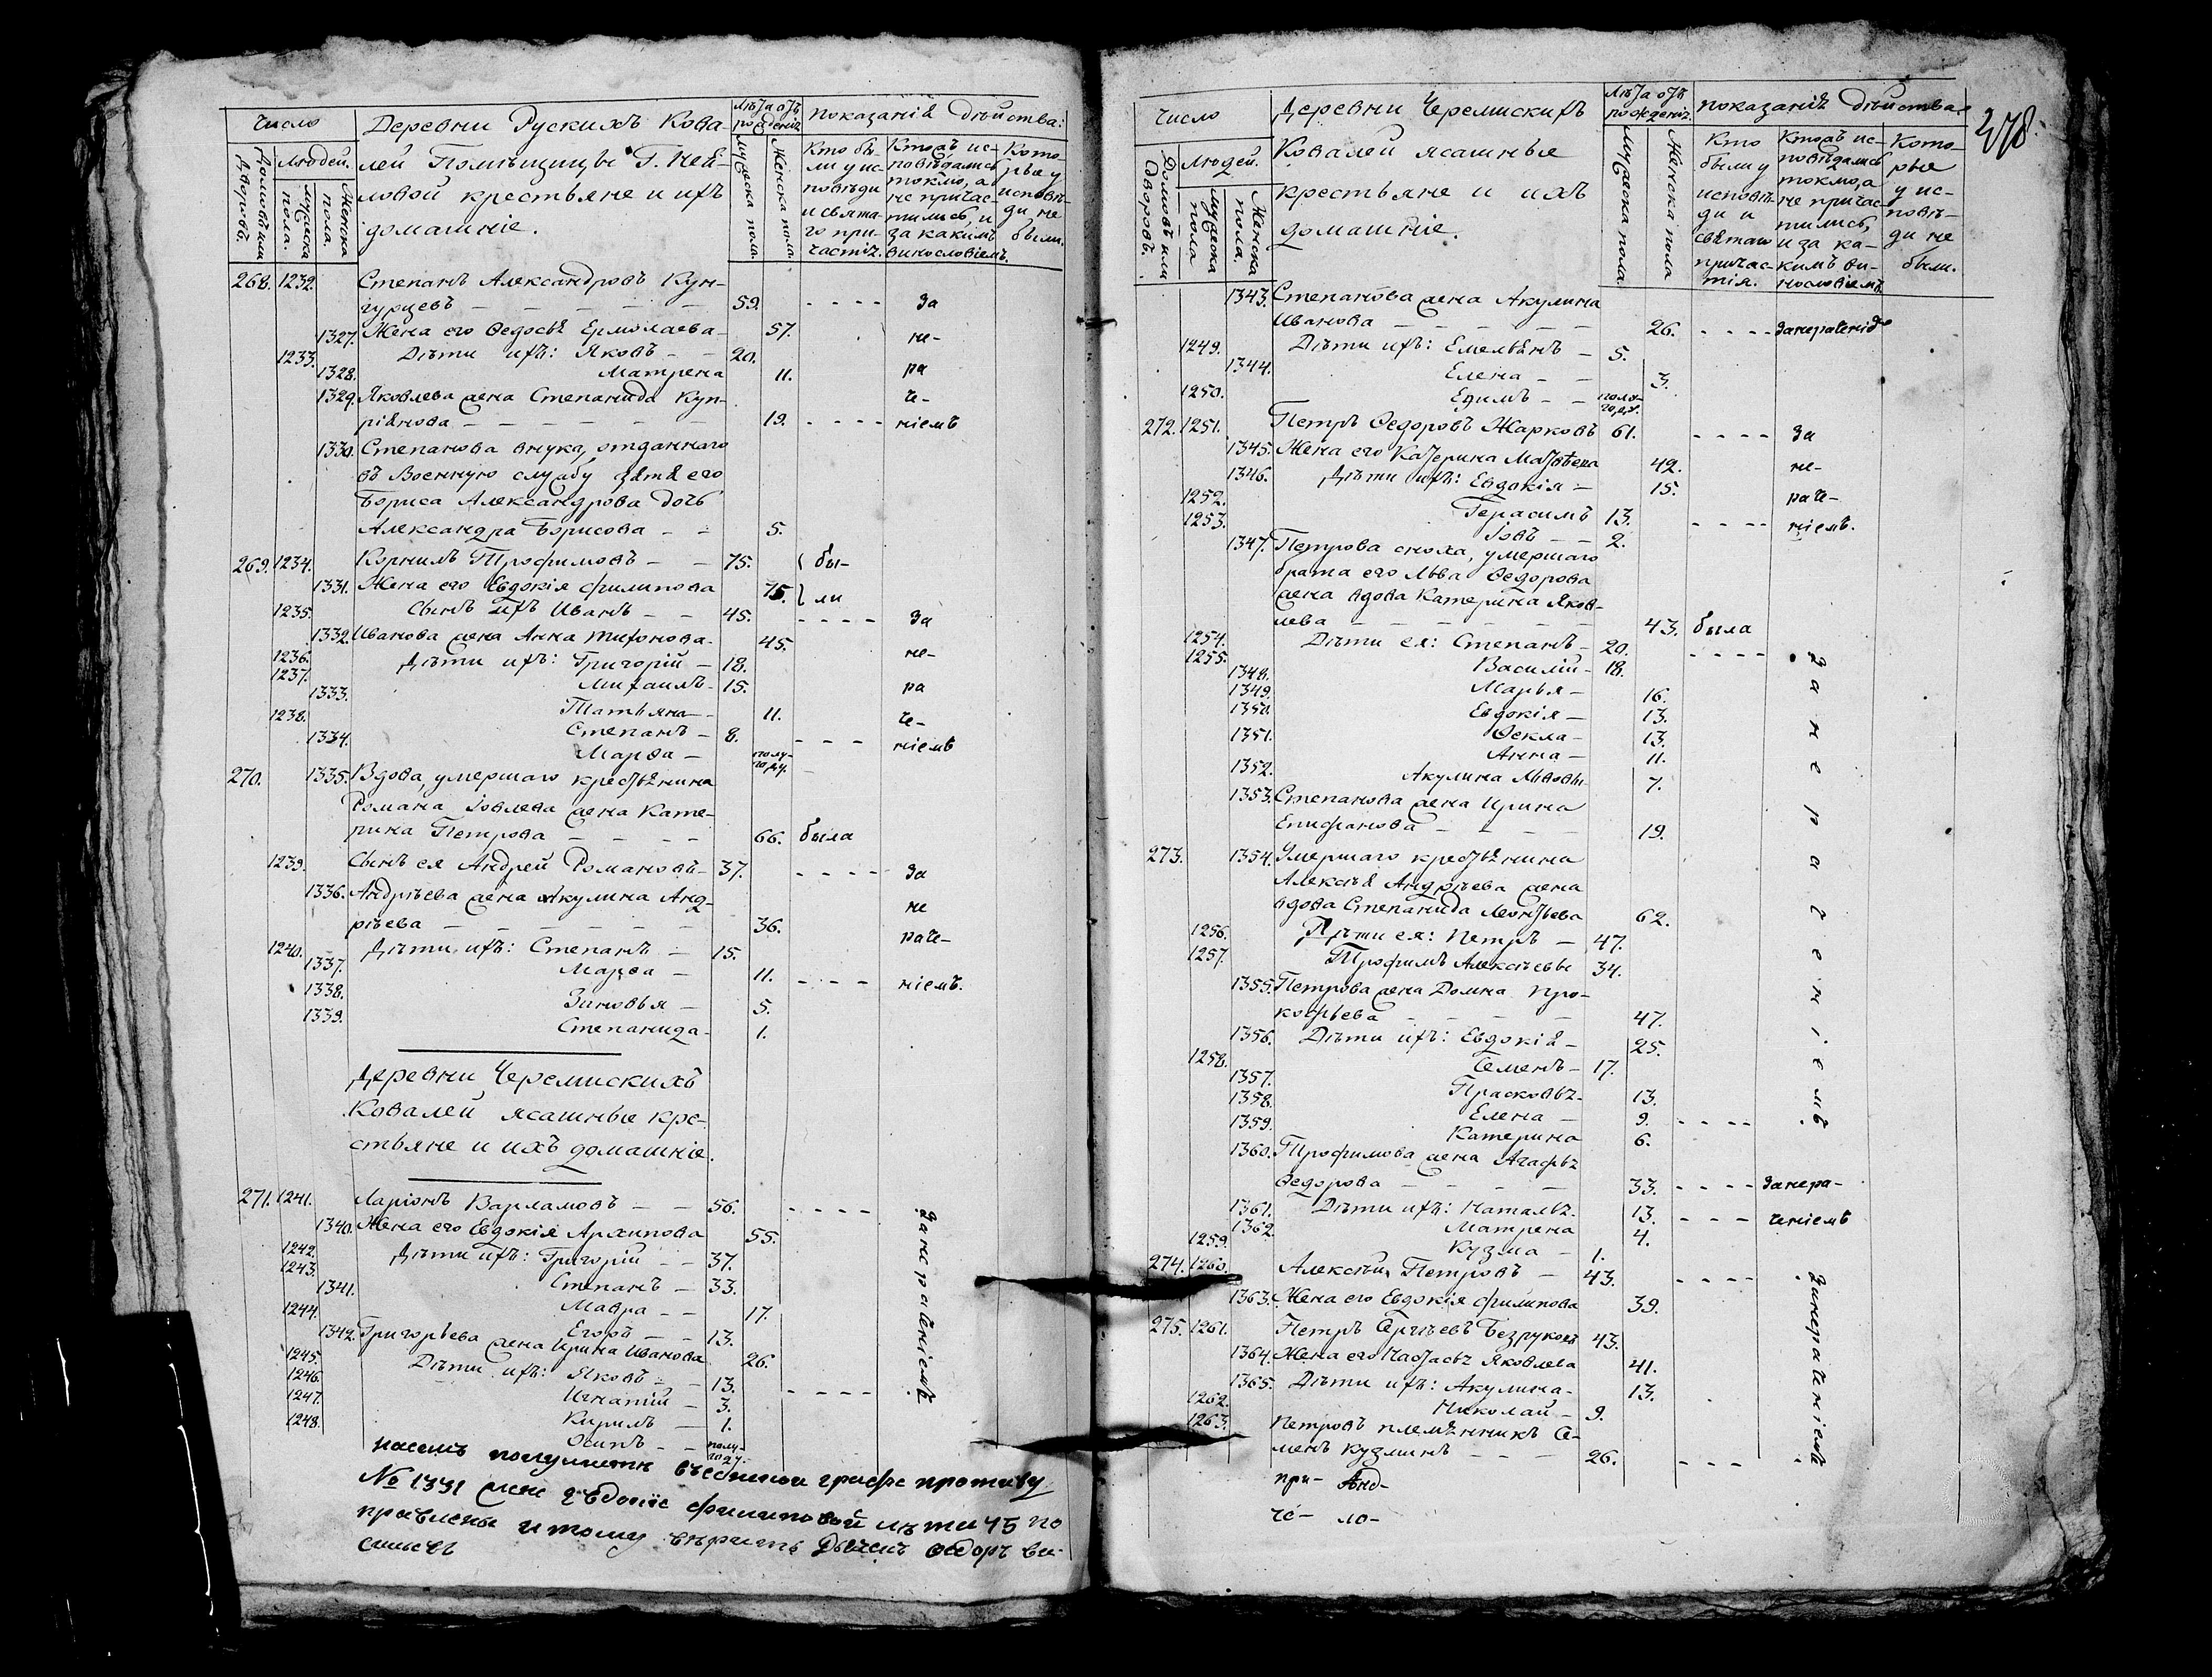 Число
Деревни Рускихъ Кова-
Лѣта отъ рожденія
показанія дѣйства:
Домовъ или дворовъ.
Людей.
мужеска пола.
Женска пола.
лей Помѣщицы Г. Неѣ-
ловой крестьяне и ихъ
домашніе.
мужеска пола.
Женска пола.
Кто бы-
ли у ис-
повѣди
и свята-
го при-
частія.
Ктожъ ис-
повѣдались
токмо, а
не причас-
тились, и
за какимъ
винословіемъ.
Кото-
рые у
исповѣ-
ди не
были.
268. 1232. Степанъ Александровъ Кун-
гурцевъ — — — 59. - - - - за
1327. Жена его Ѳедосья Ермолаева 57. не-
1233. Дѣти ихъ: Яковъ — 20.
1328. Матрена 11. ра
1329. Яковлева жена Степанида Куп- че-
ріянова — — — 19. - - - - ніемъ
1330. Степанова внука, отданнаго
въ Военную службу зятя его
Бориса Александрова дочь
Александра Борисова — 5.
269. 1234. Корнилъ Трофимовъ — 75. бы-
1331. Жена его Евдокія Филипова 75. ли
1235. Сынъ ихъ Иванъ — 45. - - - - за
1332. Иванова жена Анна Тихонова 45.
1236. Дѣти ихъ: Григорій — 18. не-
1237. Михаилъ 15.
1333. Татьяна — 11. ра
1238. Степанъ — 8. че-
1334. Марѳа — полу-году. - - - ніемъ
270. 1335. Вдова, умершаго крестьянина
Романа Іовлева жена Кате-
рина Петрова — — — 66. была
1239. Сынъ ея Андрей Романовъ — 37. - - - - за
1336. Андрѣева жена Акулина Анд- не
рѣева — — — 36. раче-
1240. Дѣти ихъ: Степанъ — 15.
1337. Марѳа — 11. - - - ніемъ.
1338. Зиновья — 5.
1339. Степанида — 1.
Деревни Черемискихъ
Ковалей ясашные кре-
стьяне и ихъ домашніе.
271. 1241. Ларіонъ Варламовъ — 56. - - - - занераченіемъ.
1340. Жена его Евдокія Архипова 55.
1242. Дѣти ихъ: Григорій — 37.
1243. Степанъ — 33.
1341. Мавра — 17.
1244. Егоръ — 13.
1342. Григорьева жена Ирина Иванова 26.
1245. Дѣти ихъ: Яковъ — 13.
1246. Игнатій — 3. - - - -
1247. Кирилъ — 1.
1248. Осипъ — полу-году.
графе противу
№ 1331 Филиповой лѣта 75 по
и тому вѣрить Ѳедоръ
378.
Число
Деревни Черемискихъ
Лѣта отъ рожденія.
показанія дѣйства.
Домовъ или дворовъ.
Людей.
мужеска пола
Женска пола.
Ковалей ясашные
крестьяне и ихъ
домашніе.
мужеска пола.
Женска пола
Кто
были у
исповѣ-
ди и
святаго
причас-
тія.
Ктожъ ис-
повѣдались
токмо, а
не причас-
тились,
и за ка-
кимъ ви-
нословіемъ.
Кото-
рые
у ис-
повѣ-
ди не
были.
1343. Степанова жена Акулина
Иванова — — — 26. - - - - занераченіе
1249. Дѣти ихъ: Емельянъ — 5.
1344. Елена — 3.
1250. Ефимъ — полу-году.
272. 1251. Петръ Ѳедоровъ Жарковъ 61. - - - - за
1345. Жена его Катерина Матвѣева 42. не-
1346. Дѣти ихъ: Евдокія — 15.
1252. Герасимъ 13. раче-
1253. Іовъ — 2. - - - - ніемъ.
1347. Петрова сноха, умершаго
брата его Льва Ѳедорова
жена вдова Катерина Яков-
лева — — — 43. была
1254. Дѣти ея: Степанъ — 20. - - - - занераченіемъ.
1255. Василій — 18.
1348. Марья — 16.
1349. Евдокія — 13.
1350. Ѳекла — 13.
1351. Анна — 11.
1352. Акулина Львовы 7.
1353. Степанова жена Ирина
Епифанова — — — 19.
273. 1354. Умершаго крестьянина
Алексѣя Андрѣева жена
вдова Степанида Леонтьева 62.
1256. Дѣти ея: Петръ — 47.
1257. Трофимъ Алексѣевы 34.
1355. Петрова жена Домна Про-
кофьева — — — 47.
1356. Дѣти ихъ: Евдокія — 25.
1258. Семенъ — 17.
1357. Прасковья 13.
1358. Елена — 9. - - - -
1359. Катерина 6.
1360. Трофимова жена Агафья
Ѳедорова — — — 33. - - - - занера-
1361. Дѣти ихъ: Наталья 13. - - - ченіемъ
1362. Матрена 4.
1259. Кузма — 1.
274. 1260. Алексѣй Петровъ — 43. - - - - занераченіемъ
1363. Жена его Евдокія Филипова 39.
275. 1261. Петръ Сергѣевъ Безруковъ 43.
1364. Жена его Настасья Яковлева 41.
1365. Дѣти ихъ: Акулина — 13.
1262. Николай — 9.
1263. Петровъ племянникъ Се-
менъ Кузминъ — — 26. - - -
при- Анд-
че- ло-